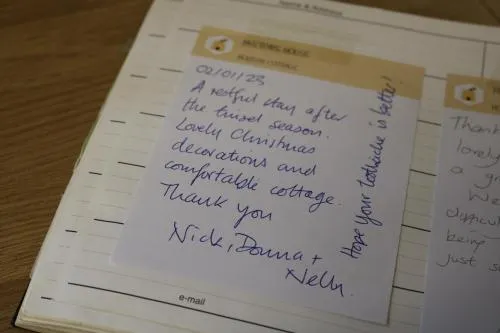 Name & Address
02/01/23
A restful stay after
the tinsel season.
Lovely Christmas
decorations and
comfortable cottage.
Thank you
Nick, Donna +
Nelly.
Hope your toothache is better!
Thank
lovely
a gr
We
difficul
being
just s
e-mail